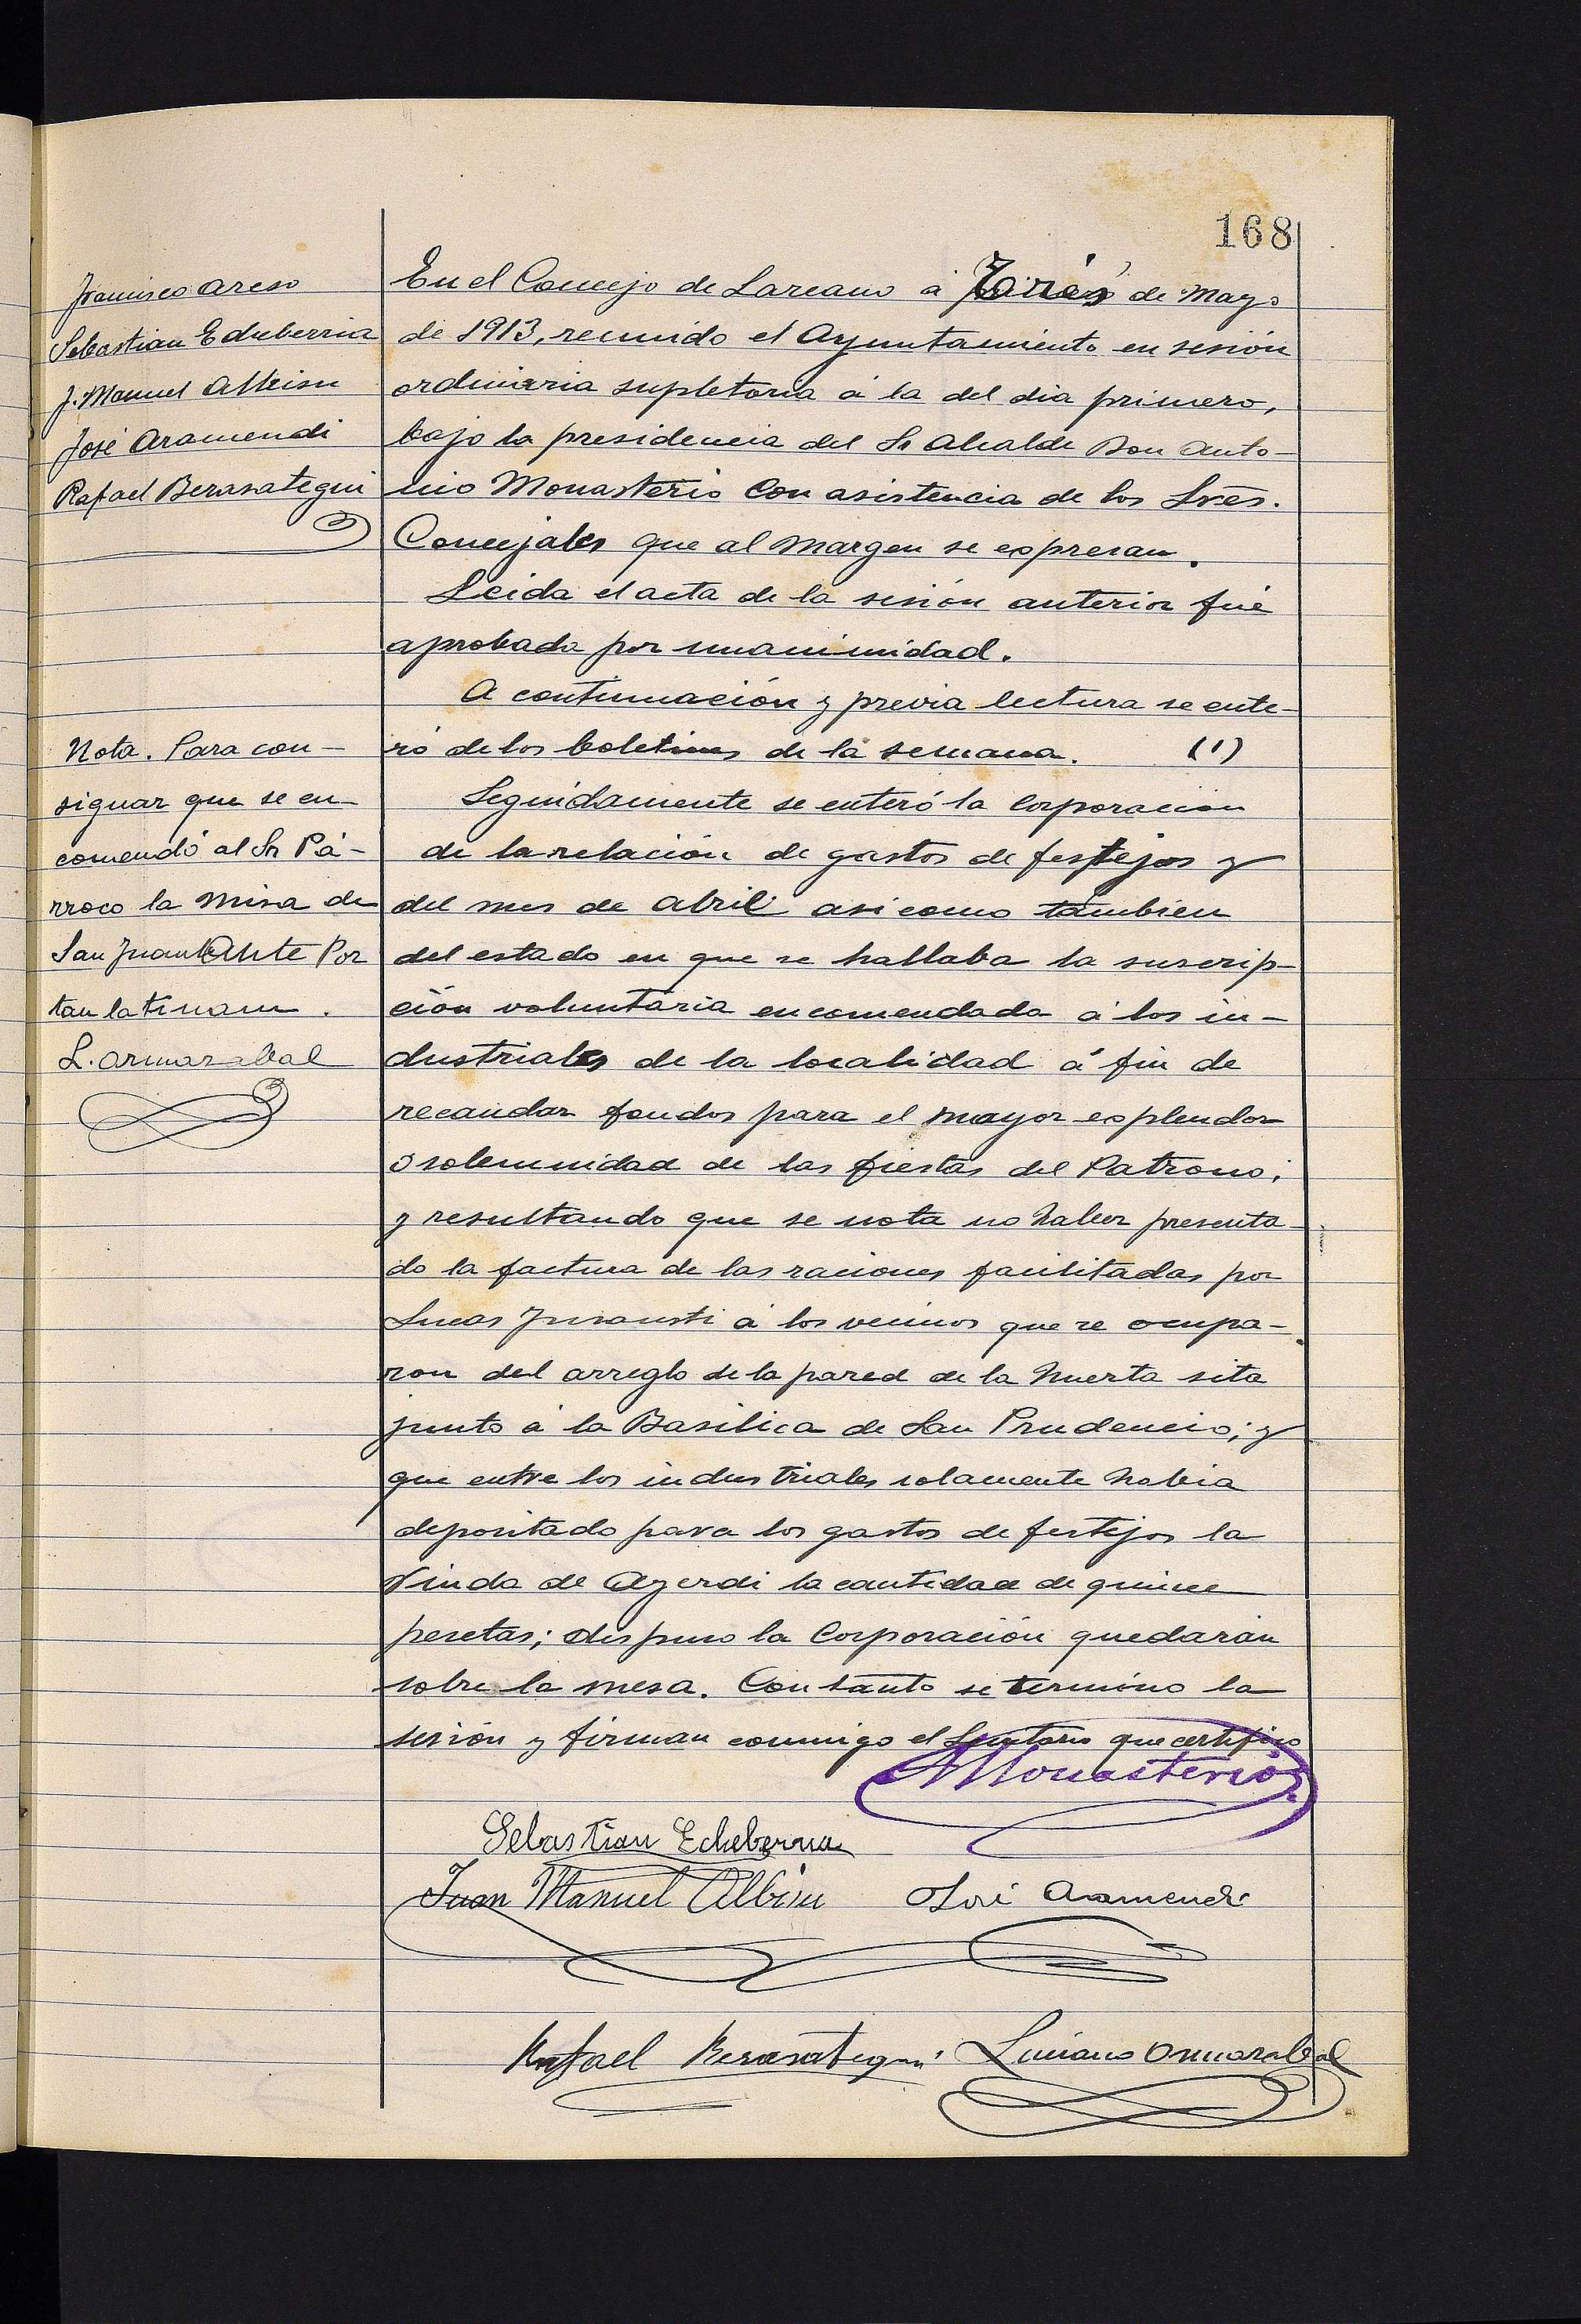 168
Francisco Areso
Sebastian Echeberria
J. Manuel Albisu
José Aramendi
Rafael Berasategui
En el Concejo de Lazcano á Trés de Mayo
de 1913, reunido el Ayuntamiento en sesión
ordinaria supletoria á la del dia primero,
bajo la presidencia del Sr Alcalde Don Anto-
nio Monasterio con asistencia de los Srés.
Concejales que al margen se expresan.
Leida el acta de la sesión anterior fué
aprobada por unanimidad.
A continuación y previa lectura se ente-
ró de los boletines de la semana. (1)
Seguidamente se enteró la Corporación
de la relación de gastos de festejos y
del mes de Abril asi como tambien
del estado en que se hallaba la suscrip-
ción voluntaria encomendada á los in-
dustriales de la localidad á fin de
recaudar fondos para el mayor esplendor
ó solemnidad de las fiestas del Patrono;
y resultando que se nota no haber presenta-
do la factura de las raciones facilitadas por
Lucas Insausti á los vecinos que se ocupa-
ron del arreglo de la pared de la huerta sita
junto á la Basilica de San Prudencio; y
que entre los industriales solamente habia
depositado para los gastos de festejos la
Viuda de Ayerdi la cantidad de quince
pesetas; dispuso la Corporación quedarán
sobre la mesa. Con tanto se términó la
sesión y firman conmigo el Secretario que certifico
Nota. Para con-
signar que se en-
comendó al Sr Pá-
rroco la Misa de
San Juan Ante Por
tan latinam.
L. Armazabal
A Monasterio
Sebastian Echeberria
Juan Manuel Albisu José Aramendi
Rafael Berasategui Luciano Armazabal